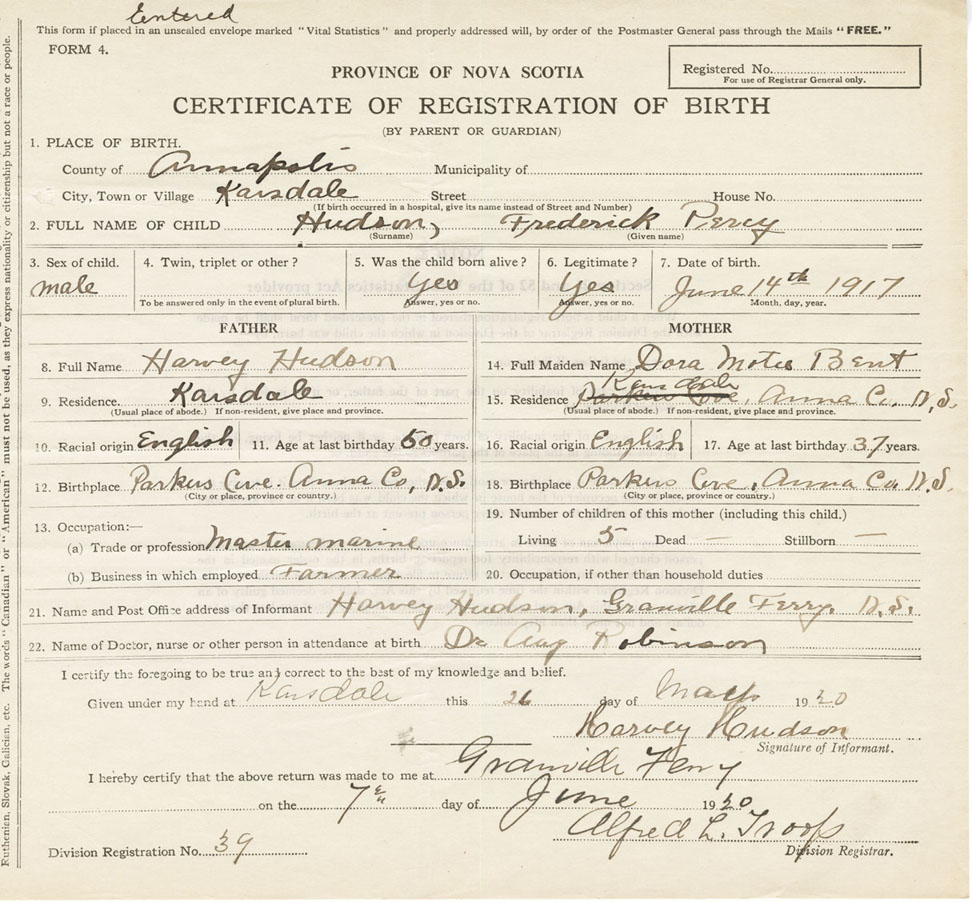 Entered
This form if placed in an unsealed envelope marked "Vital Statistics" and properly addressed will, by order of the Postmaster General pass through the Mails "FREE."
FORM 4.
Registered No.
For use of Registrar General only.
PROVINCE OF NOVA SCOTIA
CERTIFICATE OF REGISTRATION OF BIRTH
(BY PARENT OR GUARDIAN)
1. PLACE OF BIRTH.
County of Annapolis Municipality of
City, Town or Village Karsdale Street House No.
(If birth occurred in a hospital, give its name instead of Street and Number)
2. FULL NAME OF CHILD Hudson, Frederick Percy
(Surname) (Given name)
3. Sex of child. 4. Twin, triplet or other? 5. Was the child born alive? 6. Legitimate? 7. Date of birth.
male Yes Yes June 14th 1917
To be answered only in the event of plural birth. Answer, yes or no. Answer, yes or no. Month, day, year.
FATHER MOTHER
8. Full Name Harvey Hudson 14. Full Maiden Name Dora Bent
9. Residence. Karsdale 15. Residence Parkers Cove, Karsdale Anna Co. N.S.
(Usual place of abode.) If non-resident, give place and province. (Usual place of abode.) If non-resident, give place and province.
10. Racial origin English 11. Age at last birthday 50 years. 16. Racial origin English 17. Age at last birthday 37 years.
12. Birthplace Parkers Cove. Anna Co, N.S. 18. Birthplace Parkers Cove, Anna Co N.S.
(City or place, province or country.) (City or place, province or country.)
13. Occupation:— 19. Number of children of this mother (including this child.)
(a) Trade or profession Master marine Living 5 Dead — Stillborn —
(b) Business in which employed Farmer 20. Occupation, if other than household duties
21. Name and Post Office address of Informant Harvey Hudson, Granville Ferry. N.S.
22. Name of Doctor, nurse or other person in attendance at birth Dr Aug Robinson
I certify the foregoing to be true and correct to the best of my knowledge and belief.
Given under my hand at Karsdale this 26 day of 19
Harvey Hudson
Signature of Informant.
I hereby certify that the above return was made to me at Granville Ferry
on the 7th day of June 19
Alfred L. Troop
Division Registrar.
Division Registration No. 39
Ruthenian, Slovak, Galician, etc. The words "Canadian" or "American" must not be used, as they express nationality or citizenship but not a race or people.